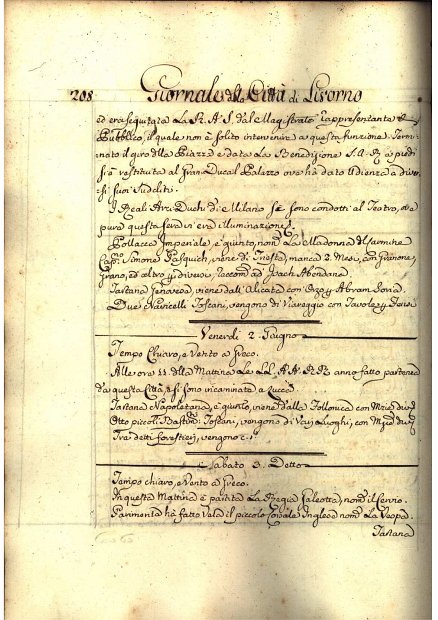 208 Giornale della Città di Livorno
ed era seguitata La R. A. S. dal Magistrato rappresentante il
Pubblico, il quale non è solito intervenire a questa funzione. Termi-
nato il giro della Piazza, e data La Benedizione S. A. R. a piedi
si è restituita al Gran Ducal Palazzo ove hà dato Udienza a diver-
si suoi Sudditi.
I Reali Arci Duchi di Milano si sono condotti al Teatro, ove
pure questa sera vi era illuminazione.
Pollacca Imperiale è giunto, nom. La Madonna del Carmine
Cap.º Simone Pasquich, viene di Trieste, manca 2. Mesi, con
Grano, ed altro
Tartana Genovese, viene dall' Alicata con
Due Navicelli Toscani, vengono di Viareggio con Tavole, e
Venerdì 2. Giugno
Tempo Chiaro, e Vento a Greco.
Alle ore 11. della Mattina Le LL. AA. RR. anno fatto partenza
da questa Città, e si sono incaminate a Lucca.
Tartana Napoletana, è giunto, viene dalla Follonica con
Otto piccoli Bastim.ti Toscani, vengono di Varj Luoghi, con
Tra detti forestieri, vengono c.s.
Sabato 3. Detto
Tempo chiaro, e Vento a Greco.
In questa Mattina è partita La Regia Galeotta, nom.
Parimente hà fatto Vela il piccolo Inglese nom. La Vespa.
Tartana